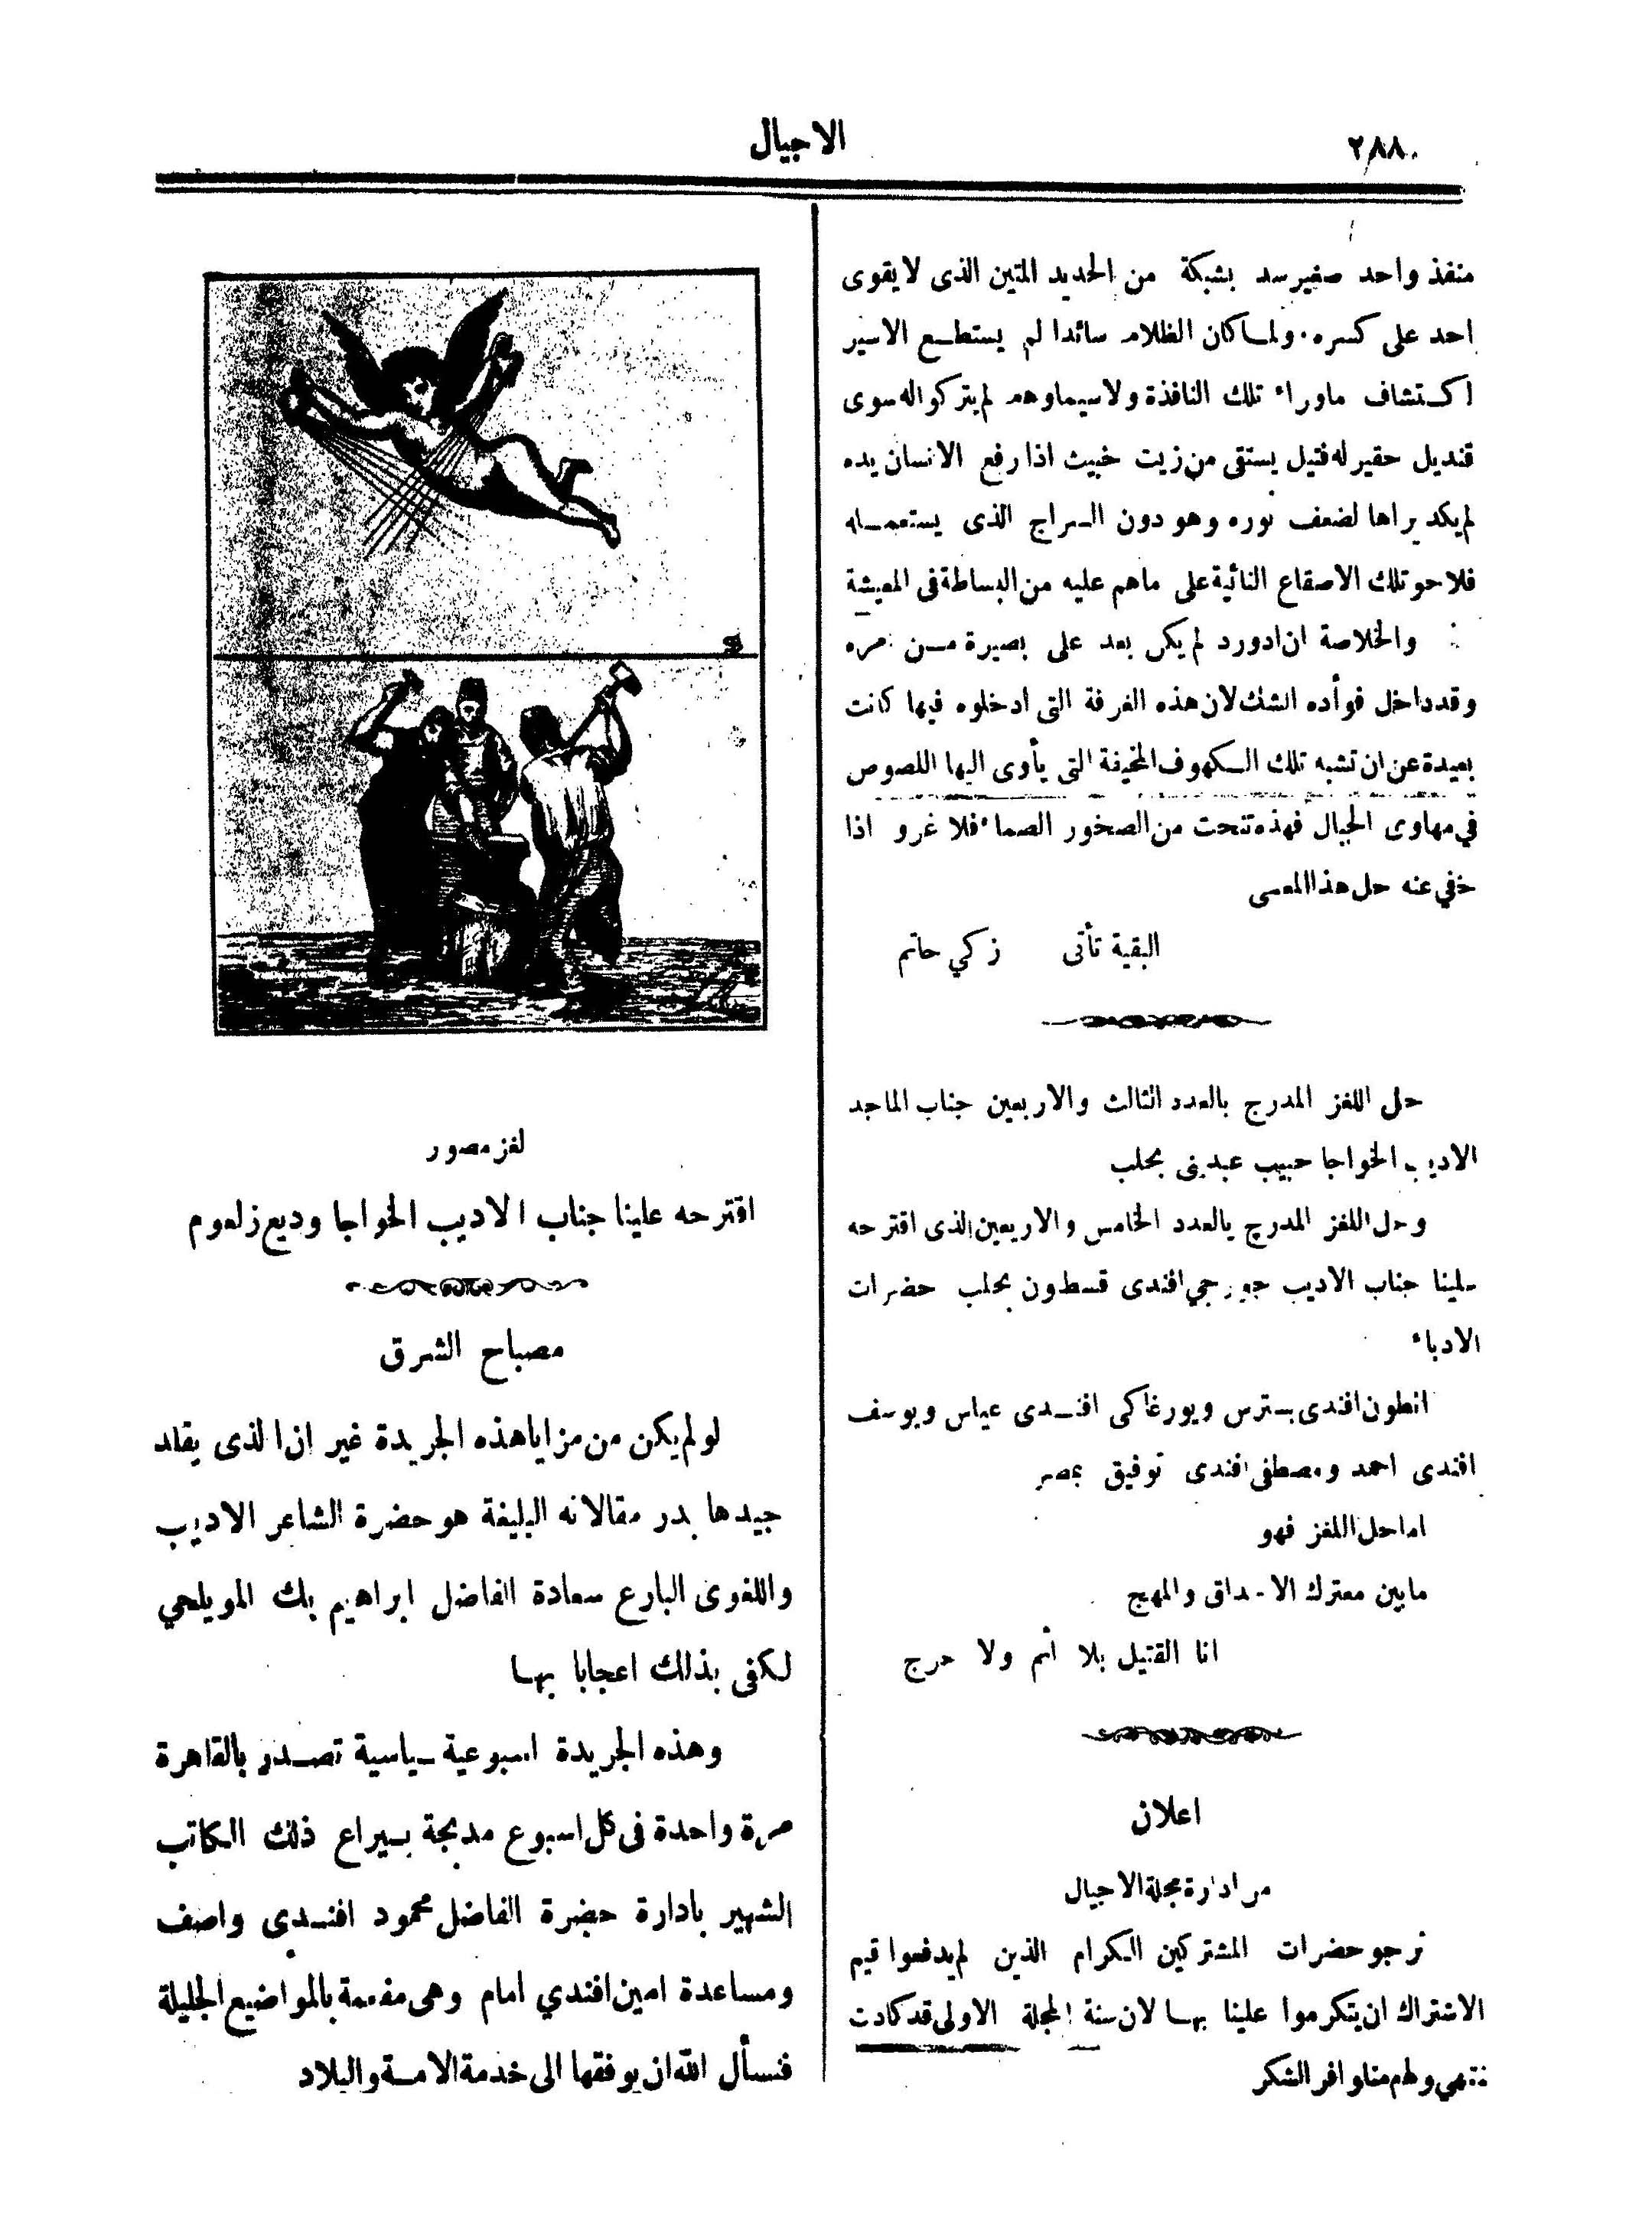 ٢٨٨
الاجيال
منفذ واحد صغير سد بشبكة من الحديد المتين الذى لا يقوى
احد على كسره. ولما كان الظلام سائدا لم يستطع الاسير
اكتشاف ما وراء تلك النافذة ولاسيما وهم لم يتركوا له سوى
قنديل حقير له فتيل يستقى من زيت خبيث اذا رفع الانسان يده
لم يكد يراها لضعف نوره وهو دون السراج الذى يستعمله
فلاحو تلك الاصقاع النائية على ماهم عليه من البساطة فى المعيشة
والخلاصة ان ادورد لم يكن بعد على بصيرة من امره
وقد داخل فوأده الشك لان هذه الغرفة التى ادخلوه فيها كانت
بعيدة عن ان تشبه تلك الكهوف المخيفة التى يأوى اليها اللصوص
في مهاوى الجبال فهذه تنحت من الصخور الصماء فلا غرو اذا
خفي عنه حل هذا المعمى
البقية تأتى زكي حاتم
حل اللغز المدرج بالعدد الثالث والاربعين جناب الماجد
الاديب الخواجا حبيب عبدينى بحلب
وحل اللغز المدرج بالعدد الخامس والاربعين الذى اقترحه
علينا جناب الاديب جورجي افندى قسطون بحلب حضرات
الادباء
انطون افندى بسترس ويورغاكى افندى عياس ويوسف
افندى احمد ومصطفى افندى توفيق بمصر
اما حل اللغز فهو
مابين معترك الاحداق والمهج
انا القتيل بلا أثم ولا حرج
اعلان
من ادارة مجلة الاجيال
نرجو حضرات المشتركين الكرام الذين لم يدفعوا قيم
الاشتراك ان يتكرموا علينا بها لان سنة المجلة الاولى قد كادت
تنتهي ولهم منا وافر الشكر
لغز مصور
اقترحه علينا جناب الاديب الخواجا وديع زلعوم
مصباح الشرق
لو لم يكن من مزايا هذه الجريدة غير ان الذى يقلد
جيدها بدر مقالاته البليغة هو حضرة الشاعر الاديب
واللغوى البارع سعادة الفاضل ابراهيم بك المويلحي
لكفى بذلك اعجابا بها
وهذه الجريدة اسبوعية سياسية تصدر بالقاهرة
مرة واحدة فى كل اسبوع مدبجة بيراع ذلك الكاتب
الشهير بادارة حضرة الفاضل محمود افندى واصف
ومساعدة امين افندي امام وهى مفعمة بالمواضيع الجليلة
فنسأل الله ان يوفقها الى خدمة الامة والبلاد